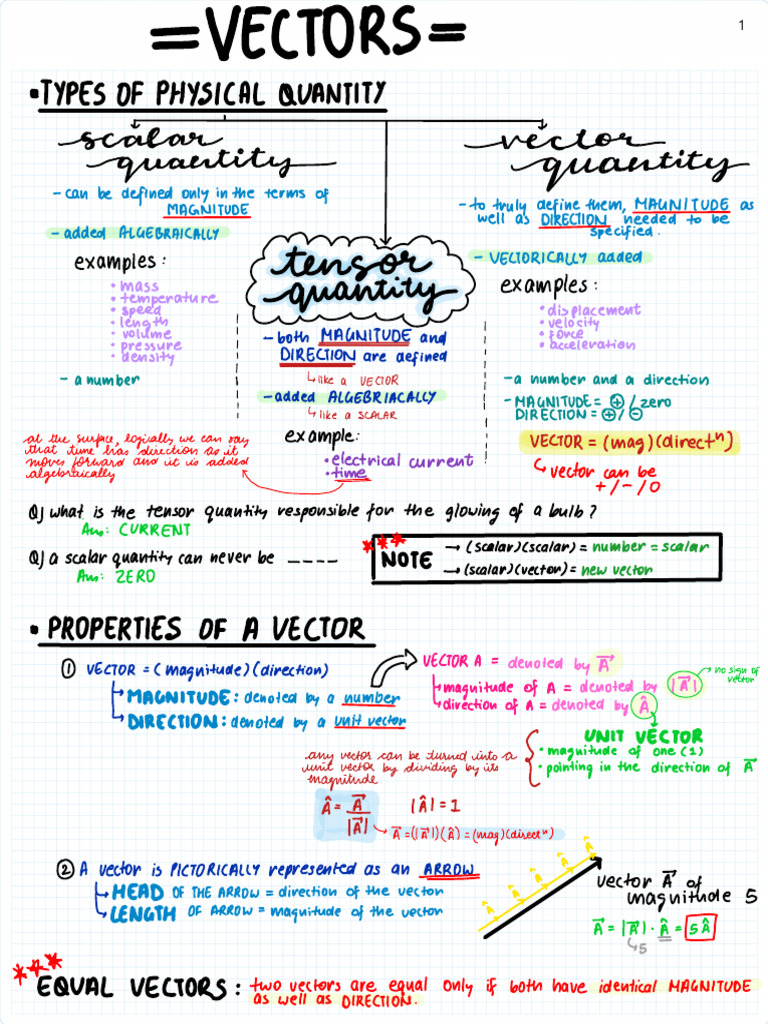 1
=VECTORS=
• TYPES OF PHYSICAL QUANTITY
scalar
quantity
- can be defined only in the terms of
MAGNITUDE
- added ALGEBRAICALLY
examples:
• mass
• temperature
• speed
• length
• volume
• pressure
• density
- a number
tensor
quantity
- both MAGNITUDE and
DIRECTION are defined
↳ like a VECTOR
- added ALGEBRIACALLY
↳ like a SCALAR
example:
• electrical current
• time
at the surface, logically we can say
that time has direction as it
moves forward and it is added
algebraically
vector
quantity
- to truly define them, MAGNITUDE as
well as DIRECTION needed to be
specified.
- VECTORICALLY added
examples:
• displacement
• velocity
• force
• acceleration
- a number and a direction
- MAGNITUDE = ⊕ / zero
DIRECTION = ⊕ / ⊖
VECTOR = (mag)(directⁿ)
↳ vector can be
+ / - / 0
Q) what is the tensor quantity responsible for the glowing of a bulb?
Ans: CURRENT
Q) a scalar quantity can never be ----
Ans: ZERO
***
NOTE
→ (scalar)(scalar) = number = scalar
→ (scalar)(vector) = new vector
• PROPERTIES OF A VECTOR
① VECTOR = (magnitude)(direction)
↳ MAGNITUDE: denoted by a number
↳ DIRECTION: denoted by a unit vector
VECTOR A = denoted by A⃗
↳ magnitude of A = denoted by |A⃗|
→ no sign of
vector
↳ direction of A = denoted by Â
UNIT VECTOR
• magnitude of one (1)
• pointing in the direction of A⃗
any vector can be turned into a
unit vector by dividing by its
magnitude
 = A⃗ / |A⃗|
|Â| = 1
↳ A⃗ = (|A⃗|)(Â) = (mag)(directⁿ)
② A vector is PICTORICALLY represented as an ARROW
↳ HEAD OF THE ARROW = direction of the vector
↳ LENGTH OF ARROW = magnitude of the vector
     Â
vector A⃗ of
magnitude 5
A⃗ = |A⃗| · Â = 5Â
↳ 5
***
EQUAL VECTORS: two vectors are equal only if both have identical MAGNITUDE
as well as DIRECTION.